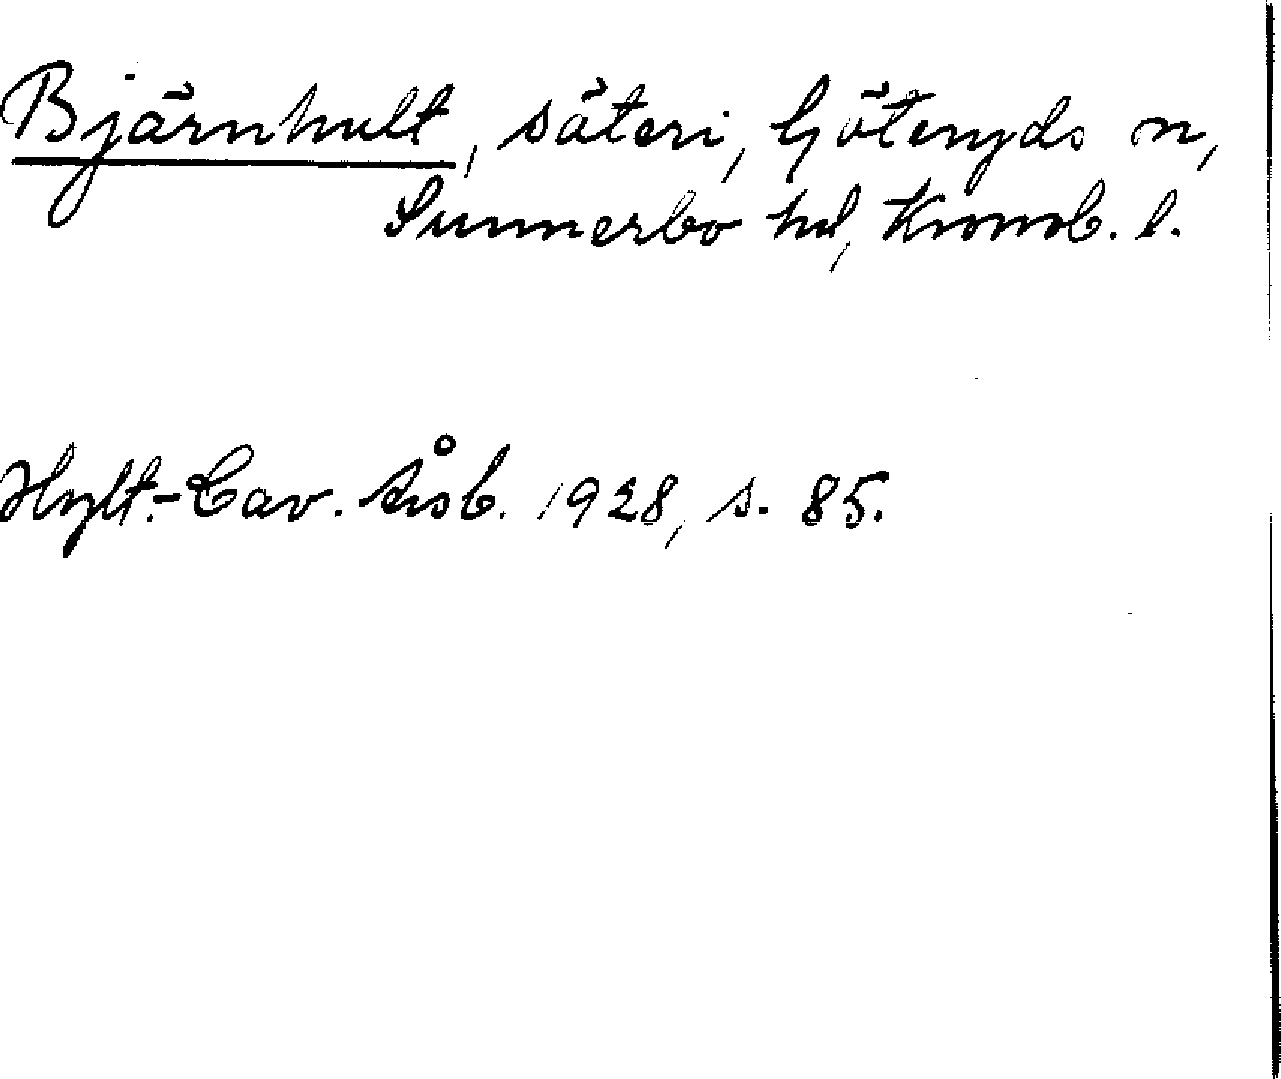 Bjärnhult, säteri, Göteryds sn,
Sunnerbo hd, Kronob. l.
Hylt.-Cav. Årsb. 1928, s. 85.